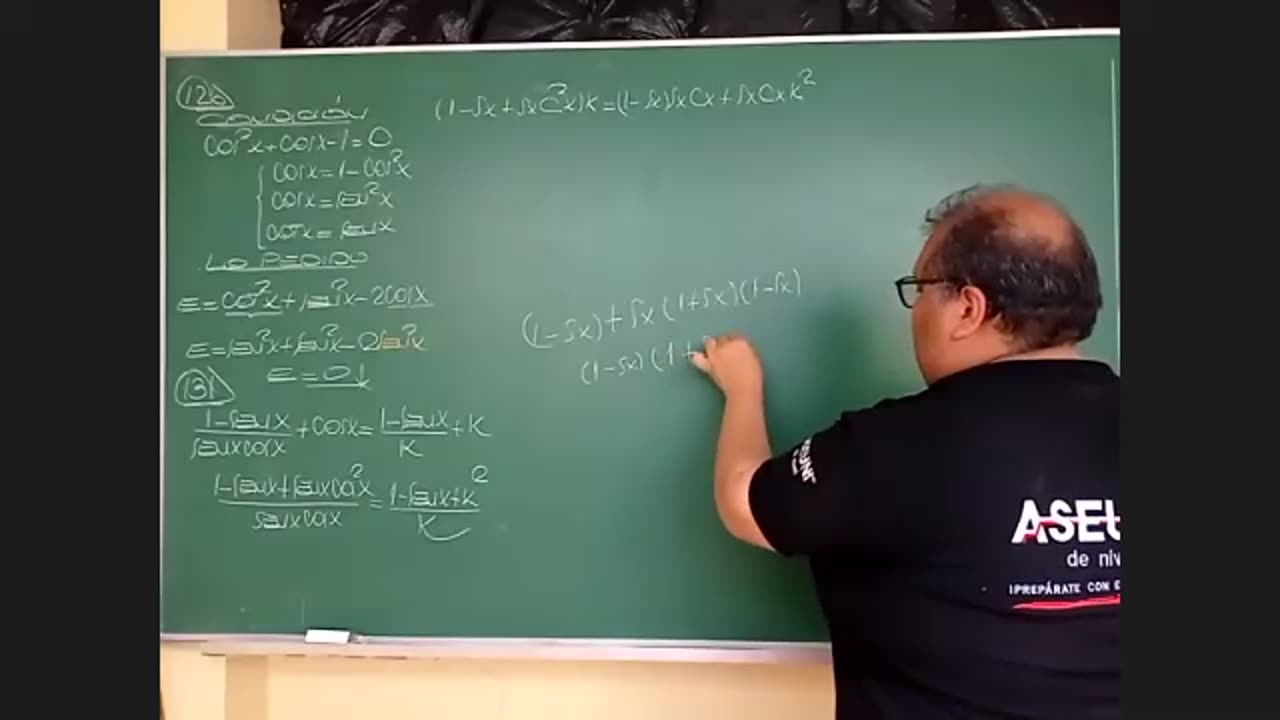 126
Condición
Cos²x+Cosx-1=0
Cosx=1-Cos²x
Cosx=Sen²x
Cosx=Senx
Lo Pedido
E=Cos²x+Sen²x-2Cosx
E=Sen²x+Sen²x-2Sen²x
E=0
131
1-Senx/SenxCosx+Cosx=1-Senx/K+K
1-Senx+SenxCos²x/SenxCosx=1-Senx+K²/K
(1-Sx+SxC²x)K=(1-Sx)SxCx+SxCxK²
(1-Sx)+Sx(1+Sx)(1-Sx)
(1-Sx)(1+
ASEU
de niv
¡PREPÁRATE CON E